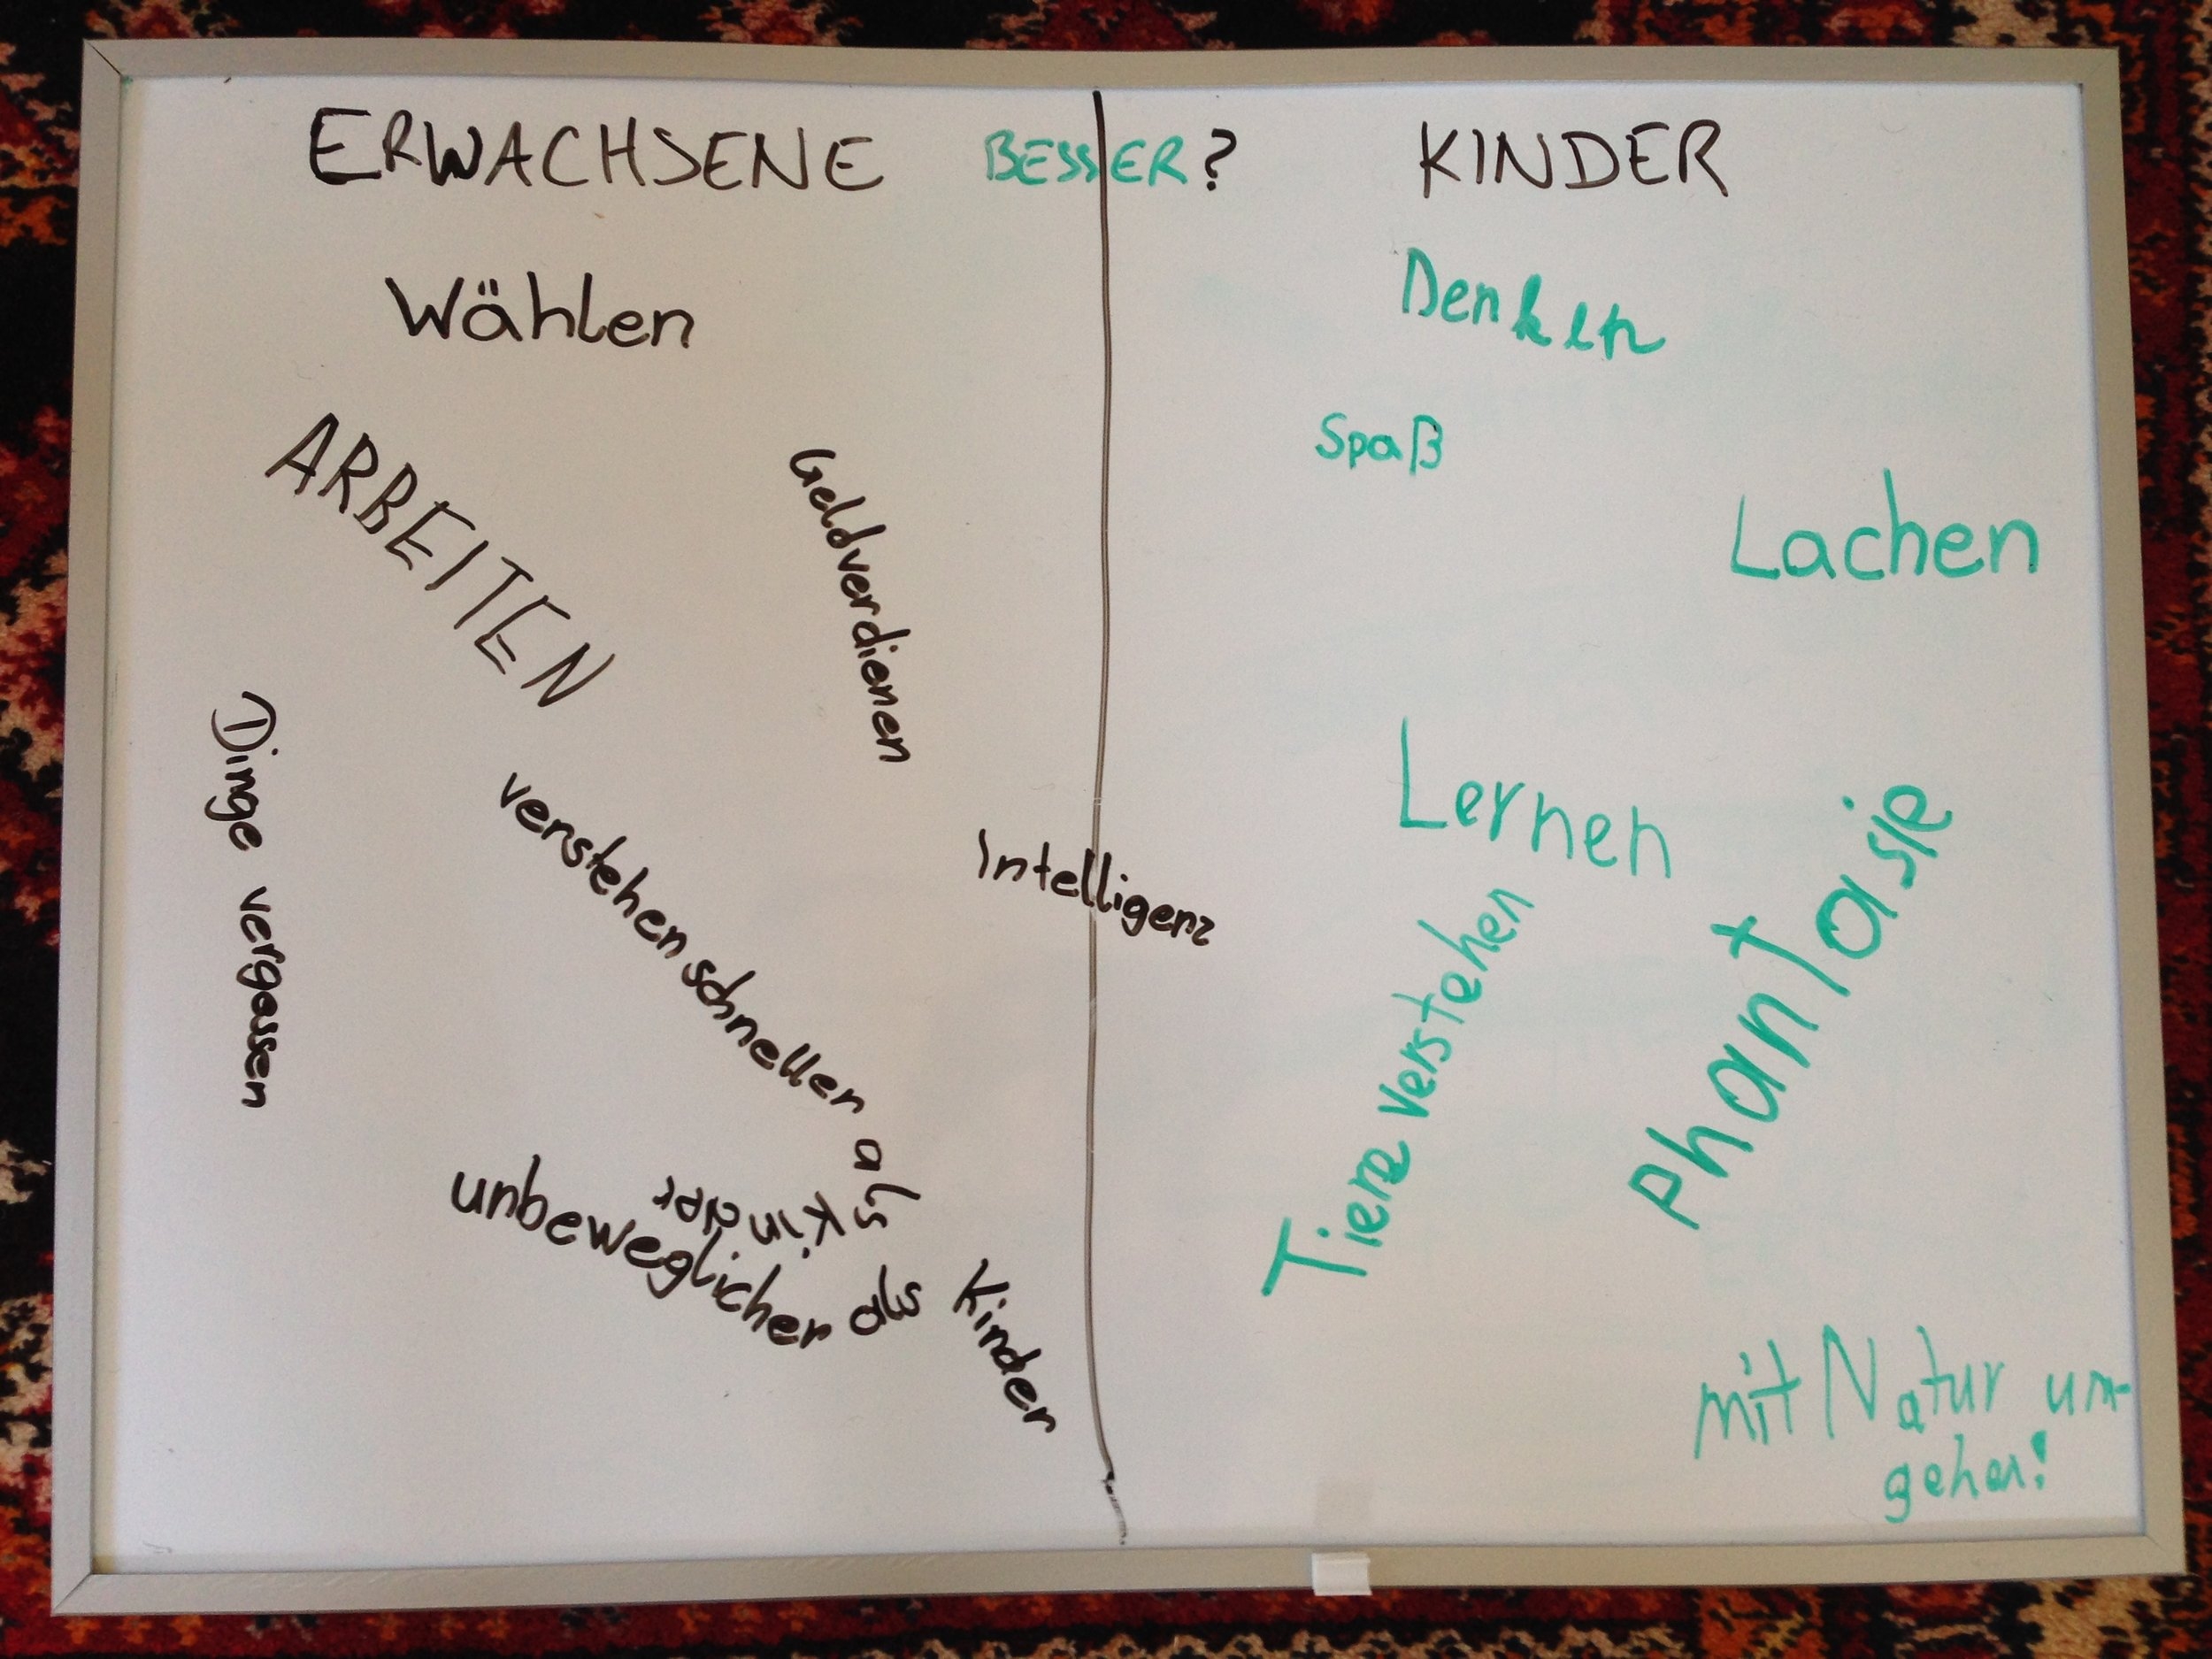 ERWACHSENE BESSER? KINDER
Wählen
ARBEITEN
Geldverdienen
Dinge vergessen
verstehen schneller als
Kinder
unbeweglicher als Kinder
Intelligenz
Denken
Spaß
Lachen
Lernen
Tiere verstehen
Phantasie
mit Natur um-
gehen!